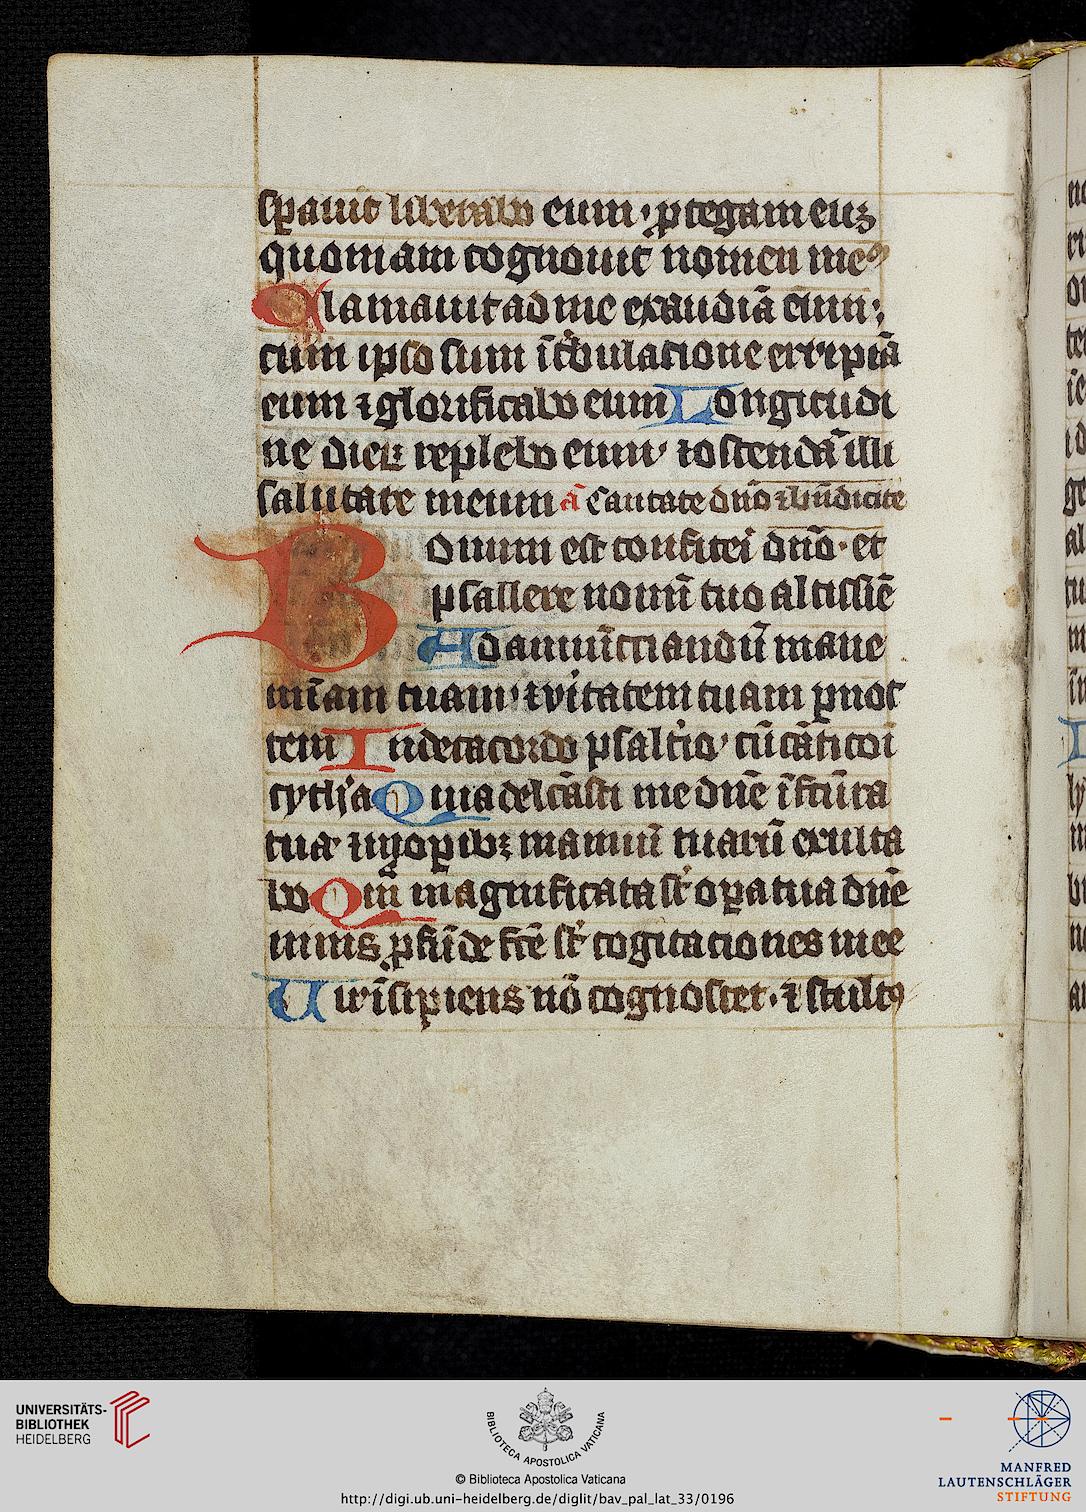 spauit liberabo eum. ꝓtegam euz
quoniam cognouit nomen meꝰ
Clamauit ad me exaudiā eum:
cum ipso sum ī tͥbulatione erripiā
eum ⁊ glorificabo eum Longitudi
ne dieꝝ replebo eum ⁊ ostendā illi
salutare meum ā Cantate dn̄o ⁊ bn̄dicite
Bonum est confitei dn̄o. et
psallere nomī tuo altissiē
Ad annūcciandū mane
mīam tuam ⁊ vͥitatem tuam ꝑ noc
tem In decacordo psaltͥio cū cātͥ coī
cythͥa Quia delcāsti me dn̄e ī fcūra
tua ⁊ in oꝑibꝫ manuū tuarū exulta
bo Qm̄ magnificata sͭ oꝑa tua dn̄e
nimis ꝓfūde fcē sͭ cogitaciones mee
Vir īsipiens nō cognoscet. ⁊ stultꝯ
UNIVERSITÄTS-
BIBLIOTHEK
HEIDELBERG
BIBLIOTECA APOSTOLICA VATICANA
© Biblioteca Apostolica Vaticana
http://digi.ub.uni-heidelberg.de/diglit/bav_pal_lat_33/0196
MANFRED
LAUTENSCHLÄGER
STIFTUNG